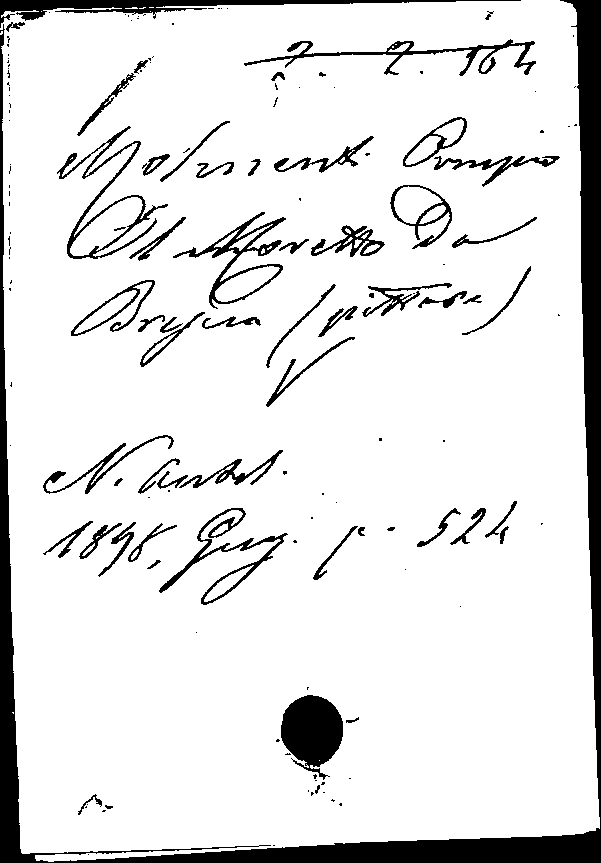 7. 2. 164
Molmenti Pompeo
Il Moretto Da
Brescia (pittore)
N. Antol.
1898, Giug. p. 524